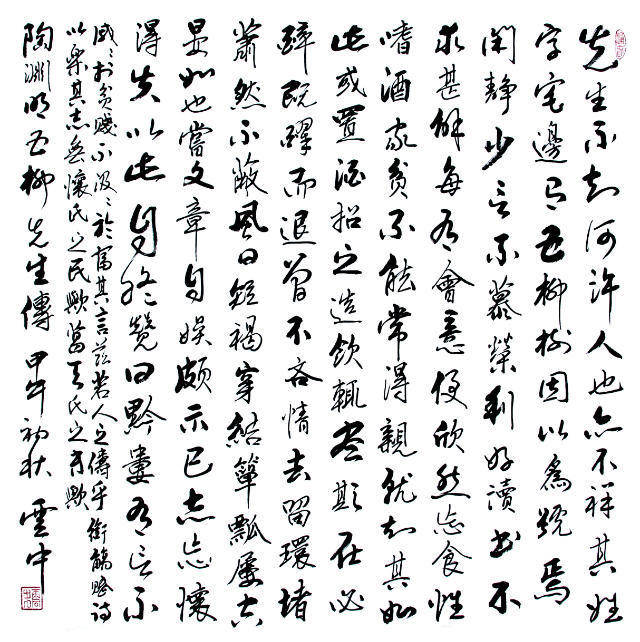 先生不知何許人也亦不祥其姓
字宅邊有五柳樹因以為號焉
閑靜少言不慕榮利好讀書不
求甚解每有會意便欣然忘食性
嗜酒家貧不能常得親就知其如
此或置酒招之造飲輒盡期在必
醉既醉而退曾不吝情去留環堵
蕭然不蔽風日短褐穿結簞瓢屢空
晏如也嘗文章自娛頗示己志忘懷
得失以此自終贊曰黔婁有言不
戚〻於貧賤不汲〻於富其言茲若人之儔乎銜觴賦詩
以樂其志無懷氏之民歟葛天氏之民歟
陶淵明五柳先生傳 甲午初秋 雲中